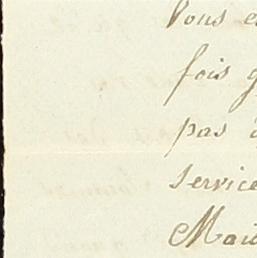 Vous e
fois g
pas
service
Mai